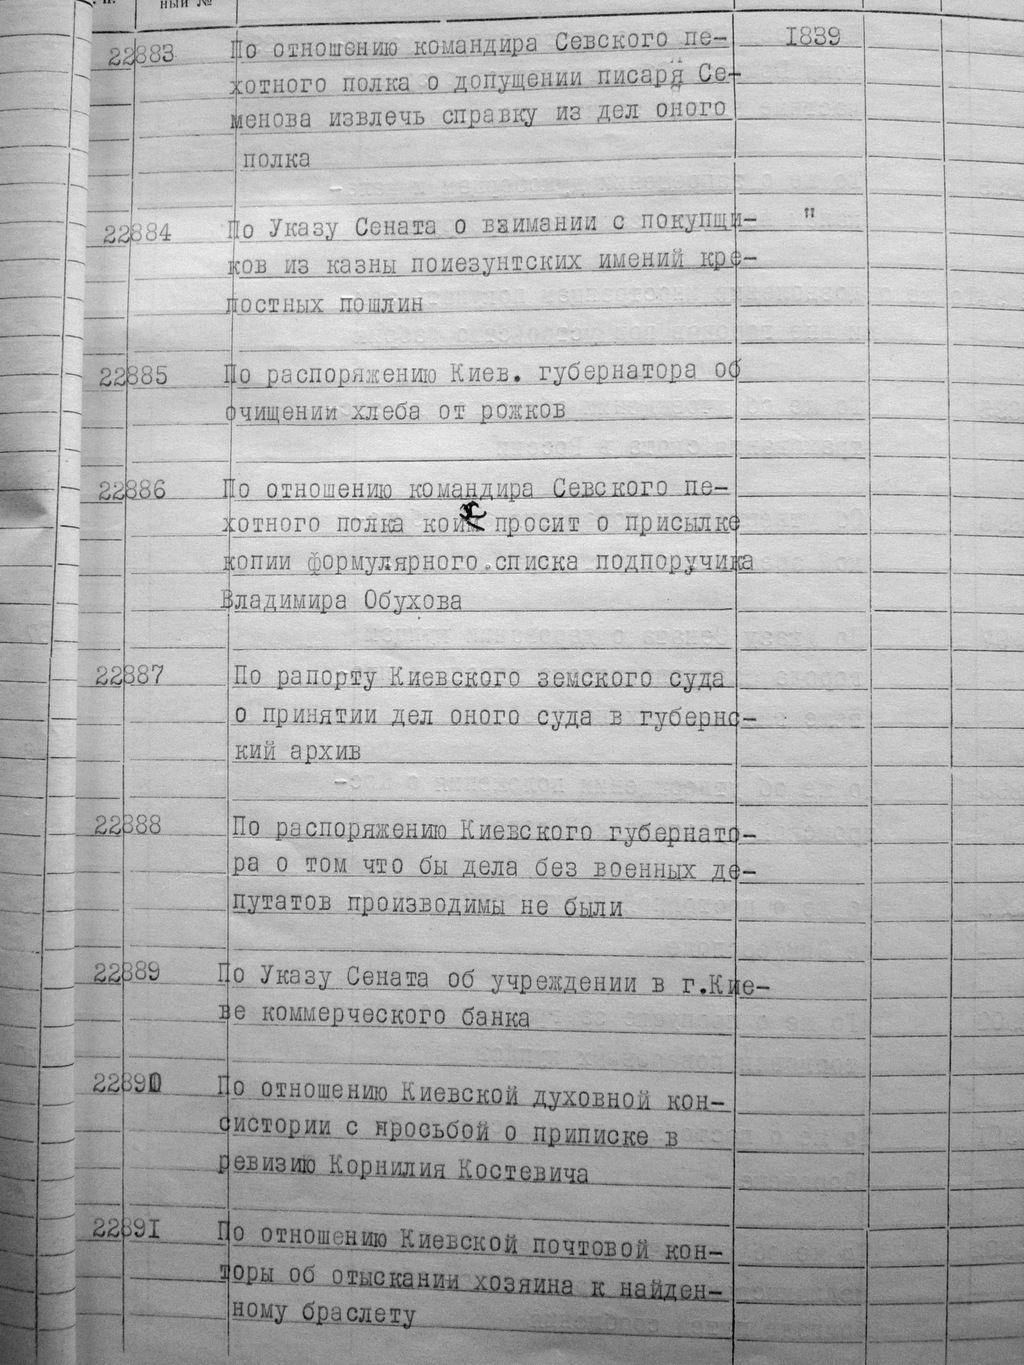 ный №
22883 По отношению командира Севского пе- 1839
хотного полка о допущении писаря Се-
менова извлечь справку из дел оного
полка
22884 По Указу Сената о взимании с покупщи- "
ков из казны поиезунтских имений кре-
постных пошлин
22885 По распоряжению Киев. губернатора об
очищении хлеба от рожков
22886 По отношению командира Севского пе-
хотного полка коим просит о присылке
копии формулярного списка подпоручика
Владимира Обухова
22887 По рапорту Киевского земского суда
о принятии дел оного суда в губернс-
кий архив
22888 По распоряжению Киевского губернато-
ра о том что бы дела без военных де-
путатов производимы не были
22889 По Указу Сената об учреждении в г.Кие-
ве коммерческого банка
22890 По отношению Киевской духовной кон-
систории с просьбой о приписке в
ревизию Корнилия Костевича
22891 По отношению Киевской почтовой кон-
торы об отыскании хозяина к найден-
ному браслету